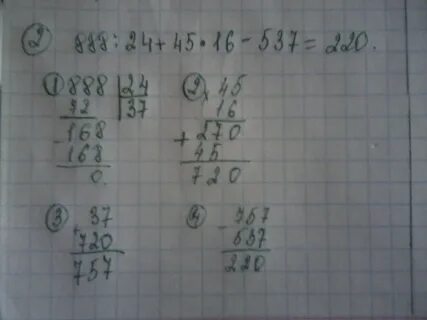 ② 888:24+45•16-537=220.
① 888 | 24
72 | 37
-168
168
0.
② × 45
16
+ 270
45
720
③ 37
+ 720
757
④ - 757
537
220